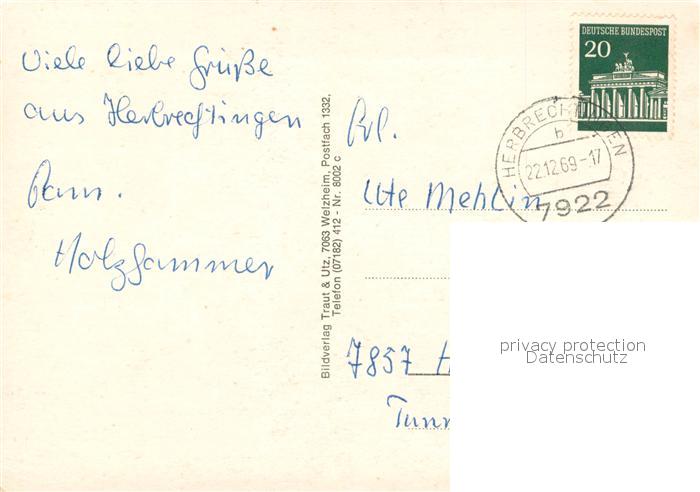 Viele liebe Grüße
aus Herbrechtingen
Fam.
Holzhammer
Bildverlag Traut & Utz, 7063 Welzheim, Postfach 1332,
Telefon (07182) 412 - Nr. 8002 c
DEUTSCHE BUNDESPOST
20
HERBRECHTINGEN
b
22.12.69-17
7922
Frl.
Ute Mehlin
7857 H
Tunn
privacy protection
Datenschutz